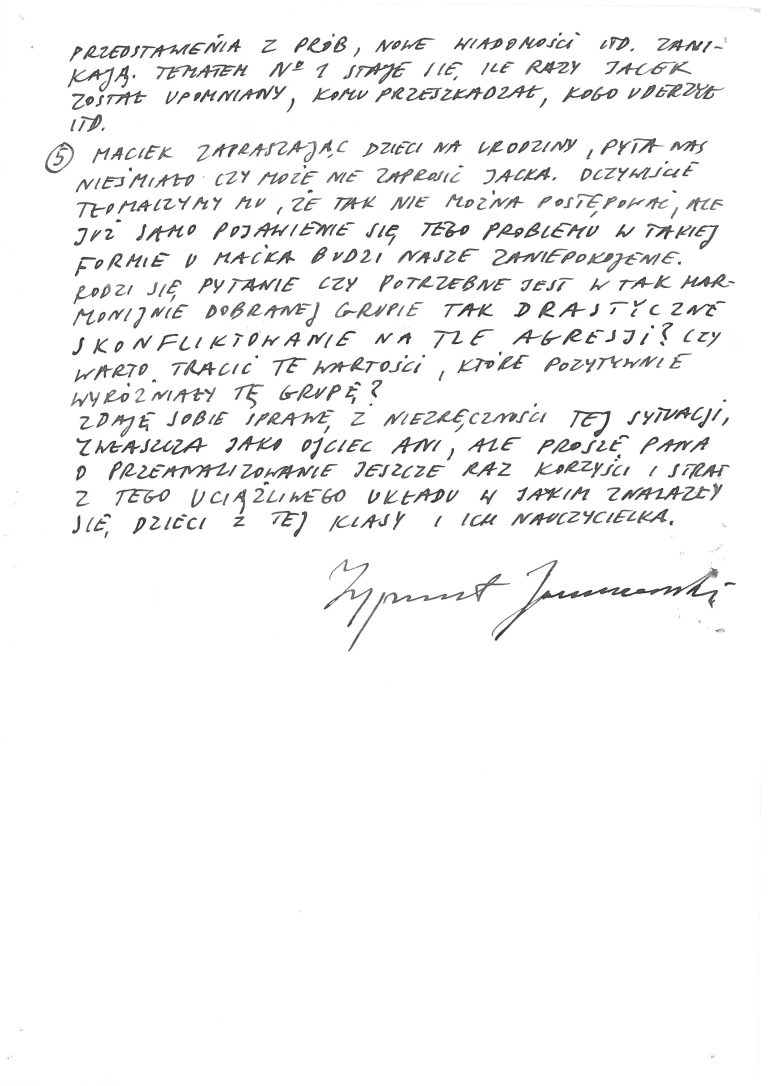 PRZEDSTAWIENIA Z PRÓB, NOWE WIADOMOŚCI ITD. ZANI-
KAJĄ. TEMATEM Nº 1 STAJE SIĘ, ILE RAZY JACEK
ZOSTAŁ UPOMNIANY, KOMU PRZESZKADZAŁ, KOGO UDERZYŁ
ITD.
⑤ MACIEK ZAPRASZAJĄC DZIECI NA URODZINY, PYTA NAS
NIEŚMIAŁO CZY MOŻE NIE ZAPROSIĆ JACKA. OCZYWIŚCIE
TŁOMACZYMY MU, ŻE TAK NIE MOŻNA POSTĘPOWAĆ, ALE
JUŻ SAMO POJAWIENIE SIĘ TEGO PROBLEMU W TAKIEJ
FORMIE U MAĆKA BUDZI NASZE ZANIEPOKOJENIE.
RODZI SIĘ PYTANIE CZY POTRZEBNE JEST W TAK HAR-
MONIJNIE DOBRANEJ GRUPIE TAK DRASTYCZNE
SKONFLIKTOWANIE NA TLE AGRESJI? CZY
WARTO TRACIĆ TE WARTOŚCI, KTÓRE POZYTYWNIE
WYRÓŻNIAŁY TĘ GRUPĘ?
ZDAJĘ SOBIE SPRAWĘ Z NIEZRĘCZNOŚCI TEJ SYTUACJI,
ZWŁASZCZA JAKO OJCIEC ANI, ALE PROSZĘ PANA
O PRZEANALIZOWANIE JESZCZE RAZ KORZYŚCI I STRAT
Z TEGO UCIĄŻLIWEGO UKŁADU W JAKIM ZNALAZŁY
SIĘ DZIECI Z TEJ KLASY I ICH NAUCZYCIELKA.
Zygmunt